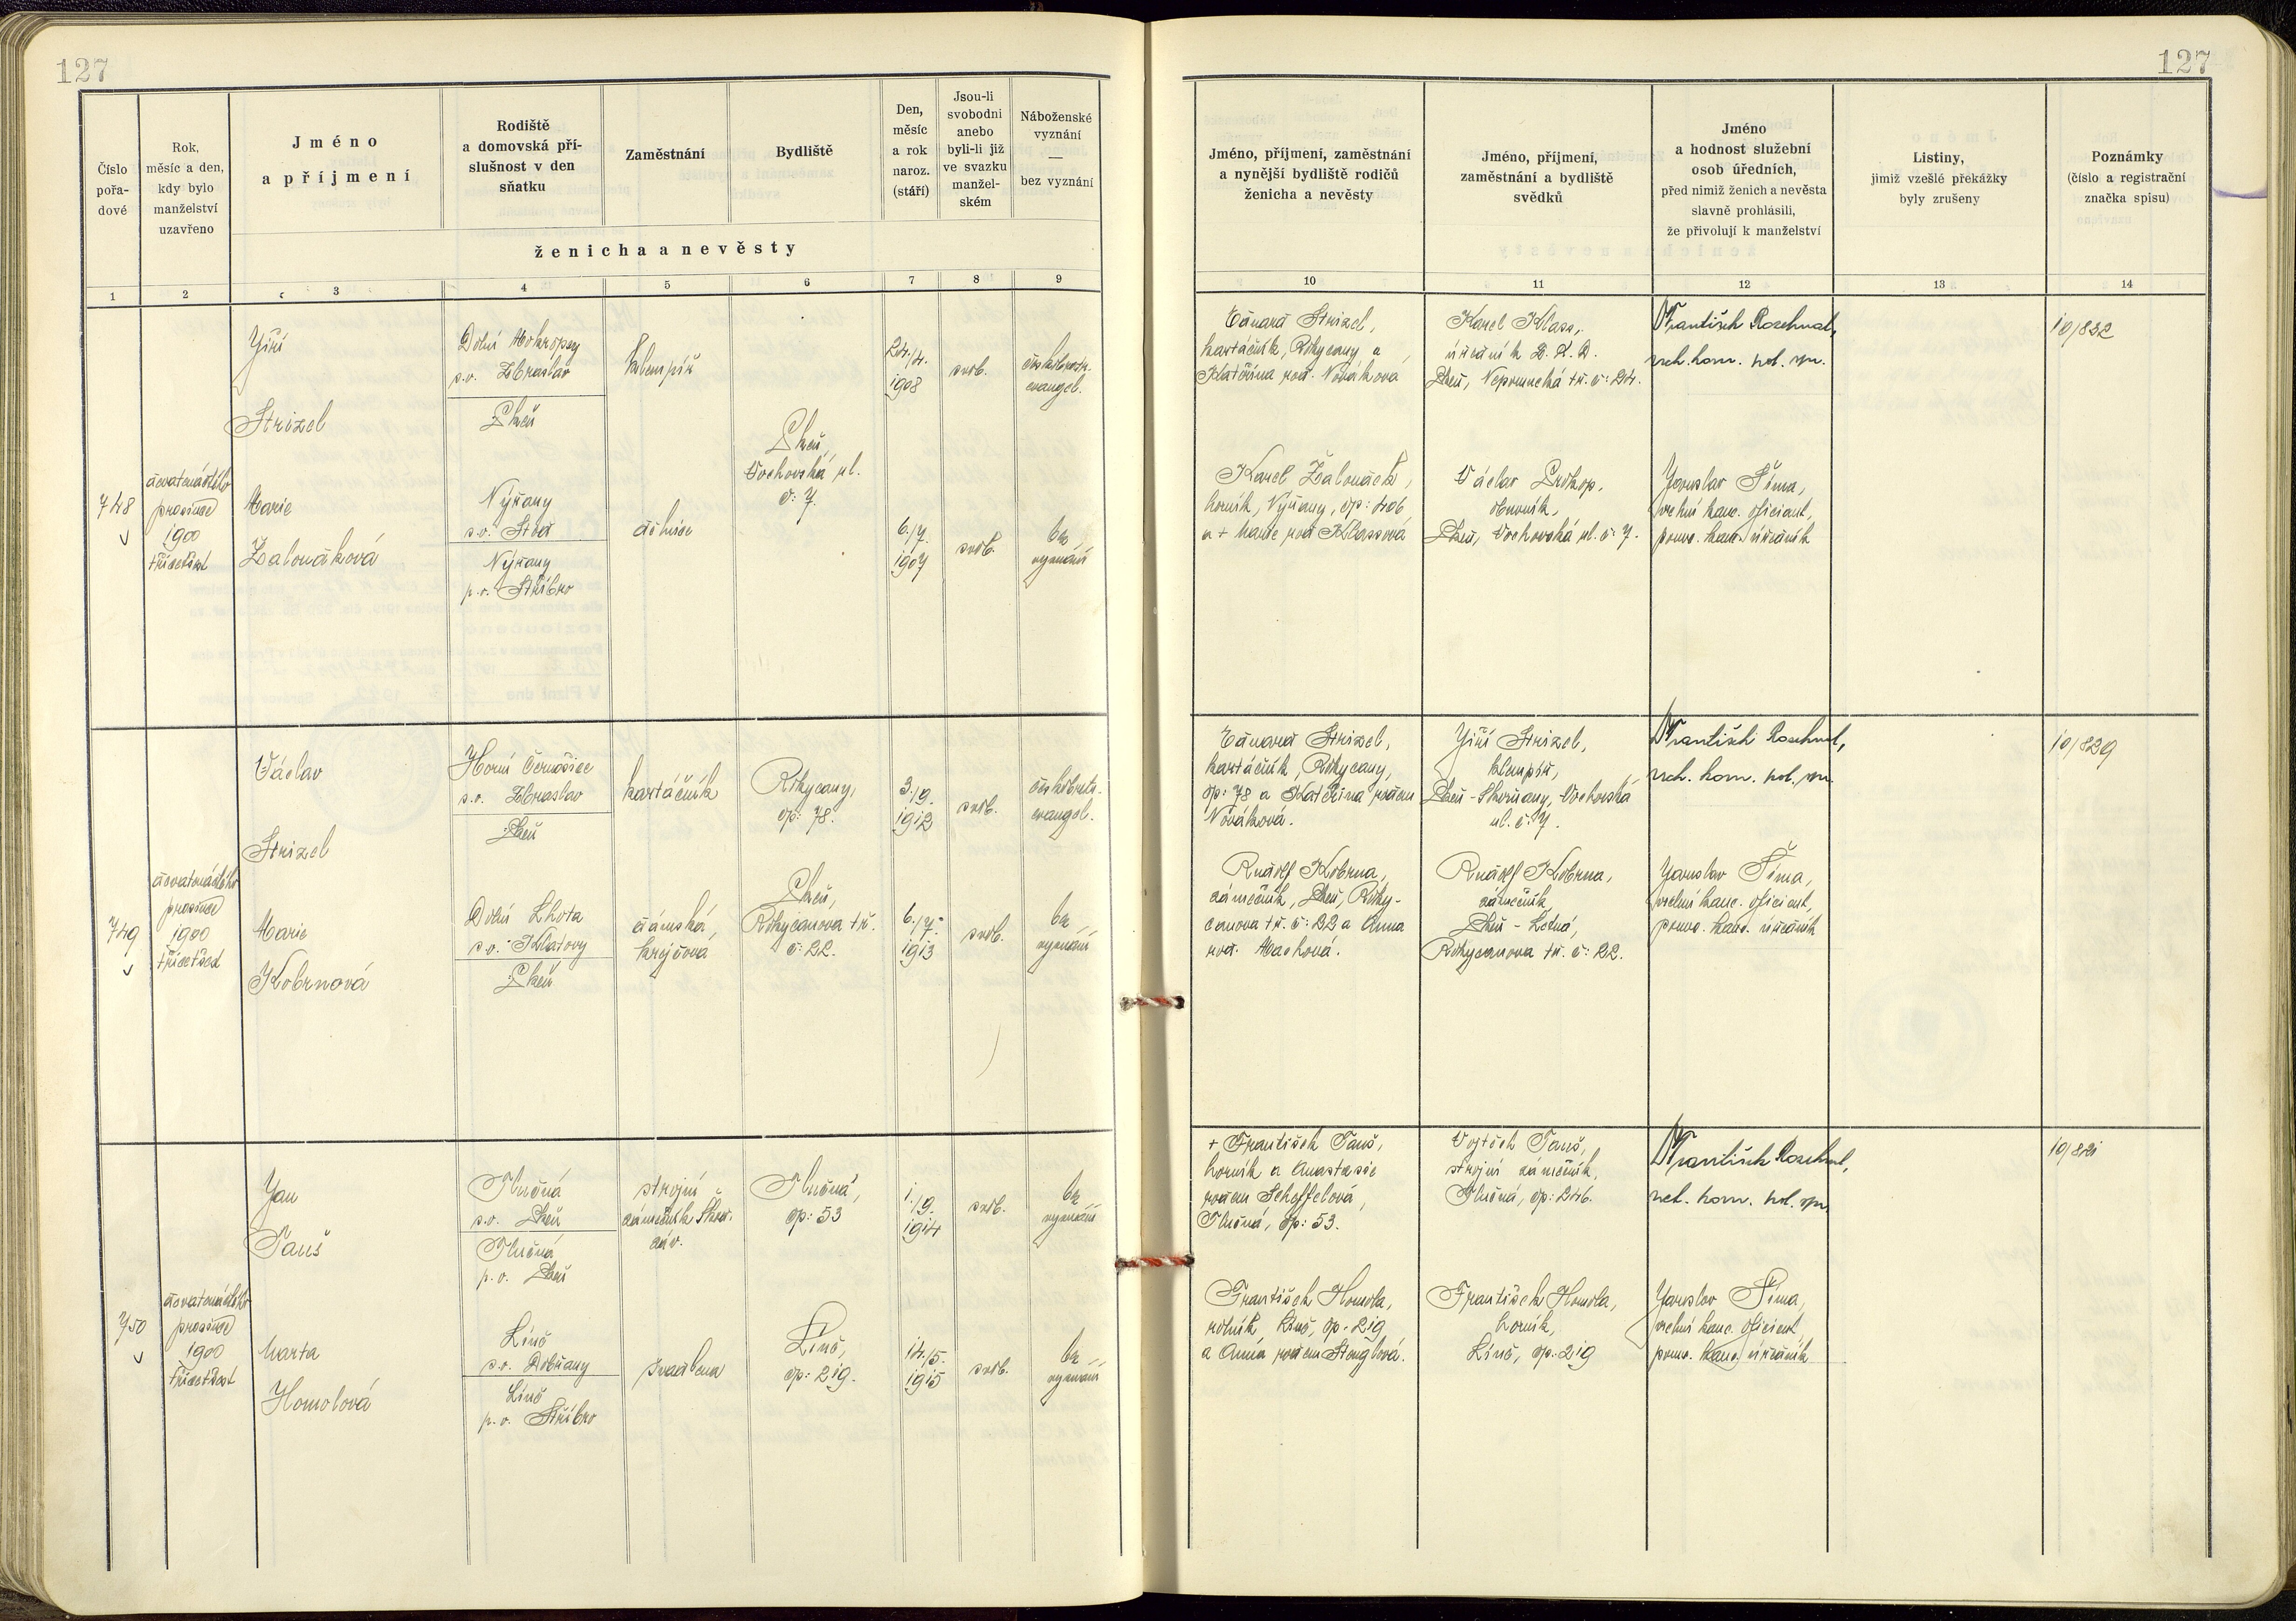 127
127
Číslo
pořa-
dové
Rok,
měsíc a den,
kdy bylo
manželství
uzavřeno
Jméno
a příjmení
Rodiště
a domovská pří-
slušnost v den
sňatku
Zaměstnání
Bydliště
Den,
měsíc
a rok
naroz.
(stáří)
Jsou-li
svobodni
anebo
byli-li již
ve svazku
manžel-
ském
Náboženské
vyznání
—
bez vyznání
ženicha a nevěsty
1 2 3 4 5 6 7 8 9
Jméno, příjmení, zaměstnání
a nynější bydliště rodičů
ženicha a nevěsty
Jméno, příjmení,
zaměstnání a bydliště
svědků
Jméno
a hodnost služební
osob úředních,
před nimiž ženich a nevěsta
slavně prohlásili,
že přivolují k manželství
Listiny,
jimiž vzešlé překážky
byly zrušeny
Poznámky
(číslo a registrační
značka spisu)
10 11 12 13 14
748
dvatenáctého
prosince
1900
třicetšest
Jiří
Strizel
Dolní Mokropsy
s.o. Zbraslav
Plzeň
klempíř
24./4.
1908
svob.
českobratr.
evangel.
Plzeň,
Vochovská ul.
č: 7.
Marie
Žaloudková
Nýřany
s.o. Stod
Nýřany
p.o. Stříbro
dělnice
6./7.
1907
svob.
bez
vyznání
Eduard Strizel,
kartáčník, Rokycany a
Kateřina roz. Nováková
Karel Klass,
úředník
Plzeň, Nepomucká tř. č: 24.
František Rosehnal,
rad. kom. pol. spr.
10/832
Karel Žaloudek,
horník, Nýřany, čp: 406
a + Marie roz. Klassová
Václav Prokop,
obuvník,
Plzeň, Vochovská ul. č: 7.
Jaroslav Šíma,
vrchní kanc. oficiant,
pomoc. kanc. úředník
749
dvatenáctého
prosince
1900
třicetšest
Václav
Strizel
Horní Černošice
s.o. Zbraslav
Plzeň
kartáčník
Rokycany,
čp: 78.
3./9.
1912
svob.
českobratr.
evangel.
Marie
Kobrnová
Dolní Lhota
s.o. Klatovy
Plzeň
dámská
krejčová
Plzeň,
Rokycanova tř.
č: 22.
6./7.
1913
svob.
bez
vyznání
Eduard Strizel,
kartáčník, Rokycany,
čp: 78 a Kateřina rozen
Nováková.
Jiří Strizel,
klempíř,
Plzeň - Skvrňany, Vochovská
ul. č: 7.
František Rosehnal,
rad. kom. pol. spr.
10/829
Rudolf Kobrna,
zámečník, Plzeň, Roky-
canova tř. č: 22 a Anna
roz. Machová.
Rudolf Kobrna,
zámečník,
Plzeň - Letná,
Rokycanova tř. č: 22.
Jaroslav Šíma,
vrchní kanc. oficiant,
pomoc. kanc. úředník
750
dvatenáctého
prosince
1900
třicetšest
Jan
Tauš
Tlučná
s.o. Plzeň
Tlučná
p.o. Plzeň
strojní
zámečník Škod.
záv.
Tlučná,
čp: 53
1./9.
1914
svob.
bez
vyznání
Marta
Homolová
Líně
s.o. Dobřany
Líně
p.o. Stříbro
švadlena
Líně,
čp: 219.
14./5.
1915
svob.
bez
vyznání
+ František Tauš,
horník a Anastazie
rozen Scheffelová,
Tlučná, čp: 53.
Vojtěch Tauš,
strojní zámečník,
Tlučná, čp: 246.
František Rosehnal,
rad. kom. pol. spr.
10/821
František Homola,
rolník, Líně, čp. 219
a Anna rozen Stenglová.
František Homola,
horník,
Líně, čp: 219
Jaroslav Šíma,
vrchní kanc. oficiant,
pomoc. kanc. úředník